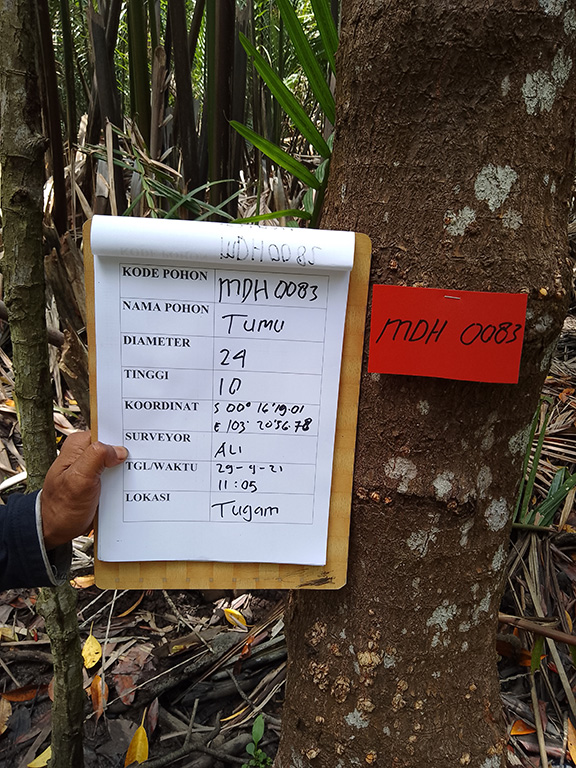 MDH 0085
KODE POHON MDH 0083
NAMA POHON TUMU
DIAMETER 24
TINGGI 10
KOORDINAT S 00° 16'19.01
E 103° 20'56.78
SURVEYOR ALI
TGL/WAKTU 29-9-21
11:05
LOKASI Tugam
MDH 0083